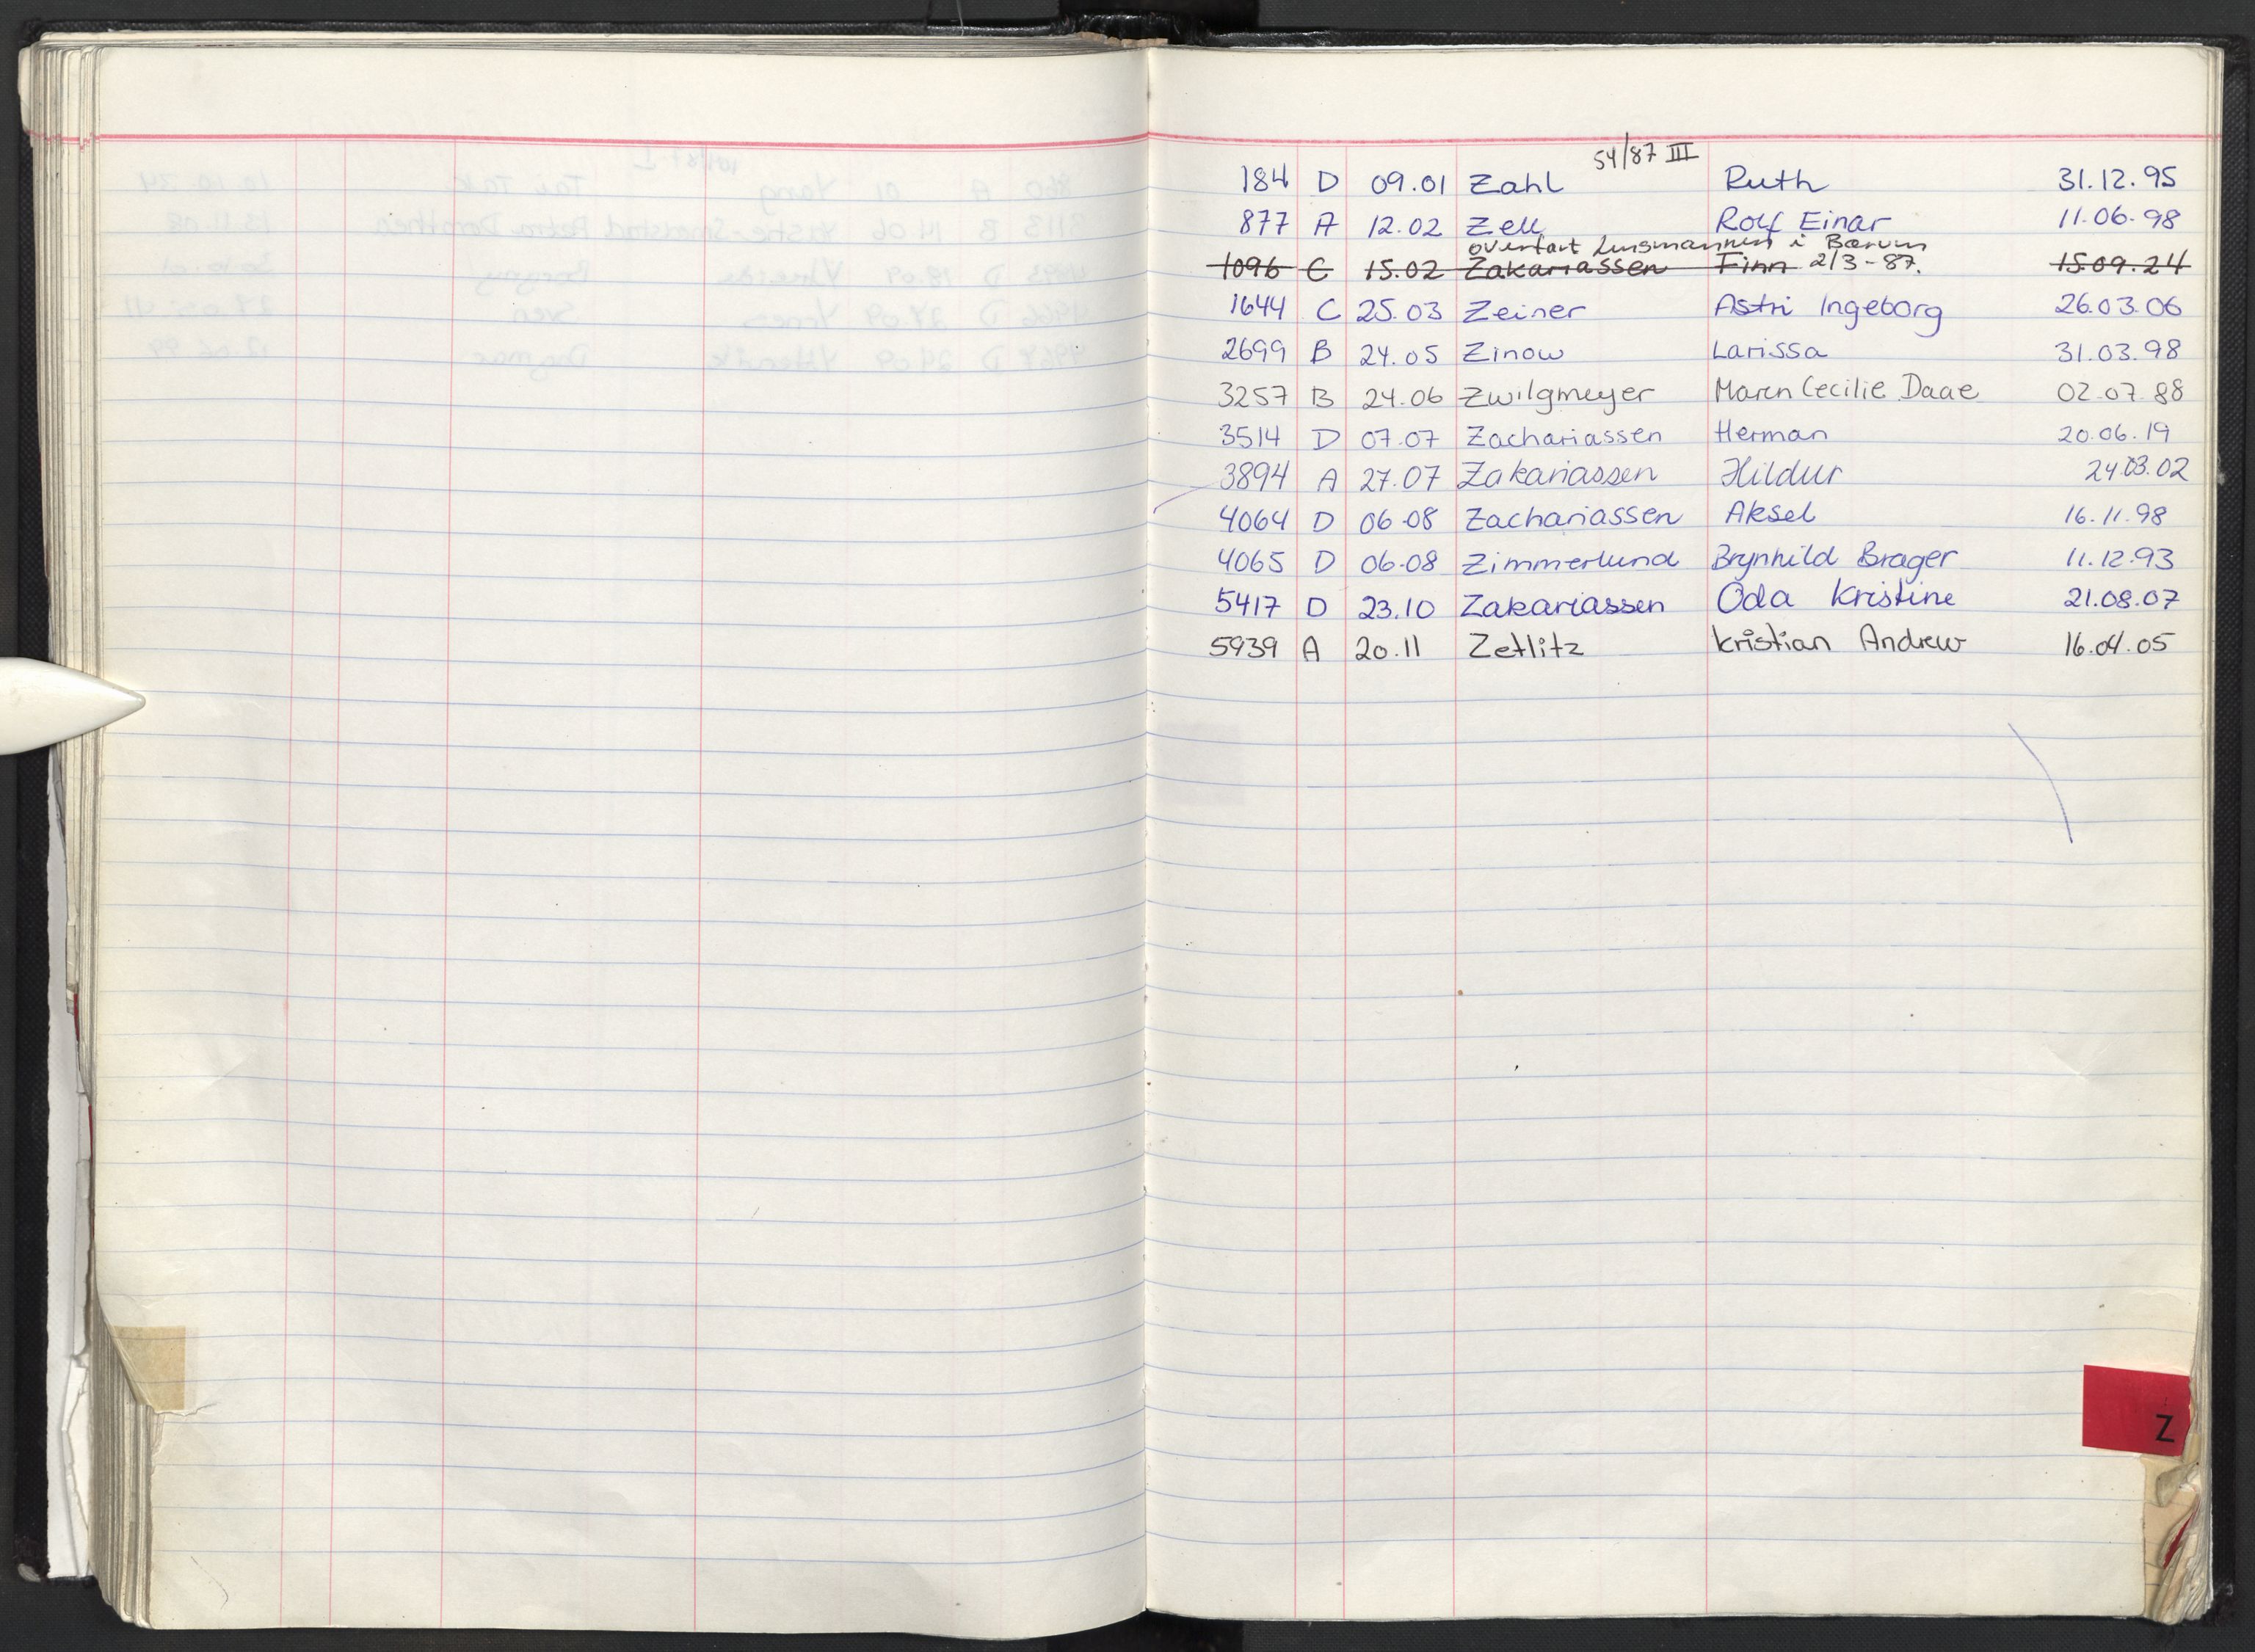 54/87 III
184 D 09.01 Zahl Ruth 31.12.95
877 A 12.02 Zell Rolf Einar 11.06.98
overført Lensmannen i Bærum
1096 C 15.02 Zakariassen Finn 2/3-87. 15.09.24
1644 C 25.03 Zeiner Astri Ingeborg 26.03.06
2699 B 24.05 Zinow Larissa 31.03.98
3257 B 24.06 Zwilgmeyer Maren Cecilie Daae 02.07.88
3514 D 07.07 Zachariassen Herman 20.06.19
3894 A 27.07 Zakariassen Hildur 24.03.02
4064 D 06.08 Zachariassen Aksel 16.11.98
4065 D 06.08 Zimmerlund Brynhild Brager 11.12.93
5417 D 23.10 Zakariassen Oda Kristine 21.08.07
5939 A 20.11 Zetlitz Kristian Andrew 16.04.05
Z